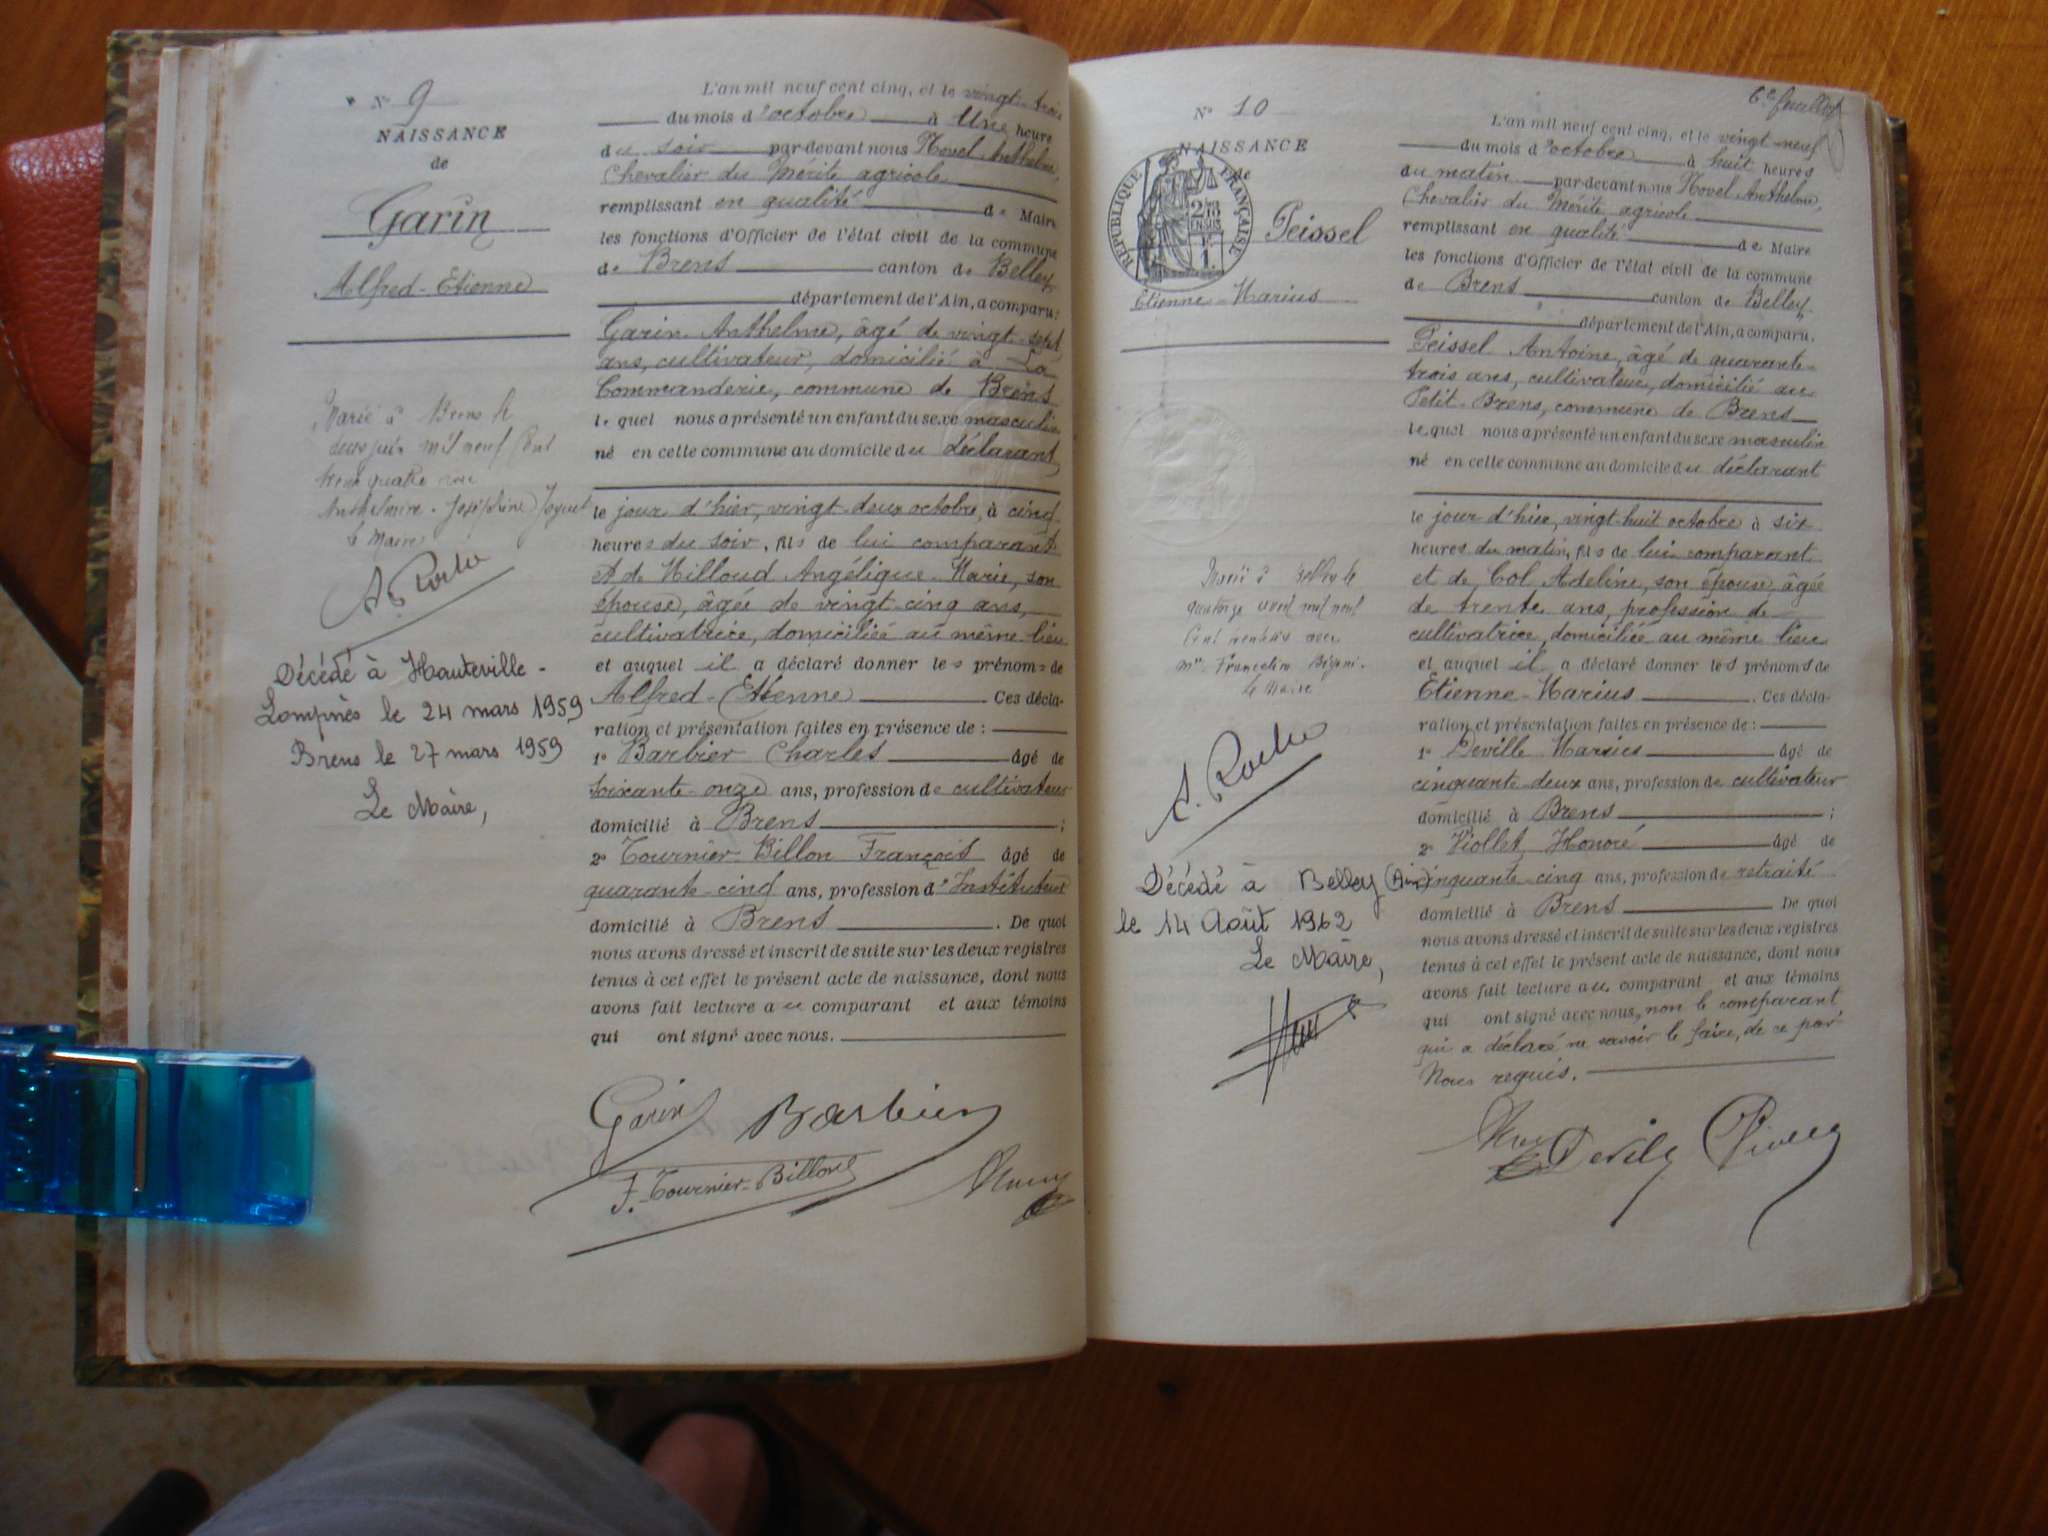 N° 9
NAISSANCE
de
Garin
Alfred-Etienne
Marié à Brens le
deux juin mil neuf cent
trente quatre avec
Anthelmine-Joséphine Joguet
Le Maire
A. Roche
Décédé à Hauteville-
Lompnès le 24 mars 1959
Brens le 27 mars 1959
Le Maire,
L'an mil neuf cent cinq, et le vingt-trois
du mois d'octobre à Une heure
du soir par-devant nous Novel Anthelme,
Chevalier du Mérite agricole
remplissant en qualité de Maire
les fonctions d'Officier de l'état civil de la commune
de Brens canton de Belley
département de l'Ain, a comparu:
Garin Anthelme, âgé de vingt-sept
ans, cultivateur, domicilié à La
Commanderie, commune de Brens
lequel nous a présenté un enfant du sexe masculin
né en cette commune au domicile du déclarant
le jour d'hier, vingt-deux octobre, à cinq
heures du soir, fils de lui comparant
et de Milloud Angélique-Marie, son
épouse, âgée de vingt-cinq ans,
cultivatrice, domiciliée au même lieu
et auquel il a déclaré donner les prénoms de
Alfred-Etienne Ces décla-
ration et présentation faites en présence de:
1° Barbier Charles âgé de
soixante-onze ans, profession de cultivateur
domicilié à Brens ;
2° Tournier-Billon François âgé de
quarante-cinq ans, profession d'Instituteur
domicilié à Brens. De quoi
nous avons dressé et inscrit de suite sur les deux registres
tenus à cet effet le présent acte de naissance, dont nous
avons fait lecture au comparant et aux témoins
qui ont signé avec nous.
Garin Barbier
F. Tournier-Billon
6e feuillet
N° 10
NAISSANCE
de
RÉPUBLIQUE FRANÇAISE
Peissel
Etienne-Marius
Marié à Belley le
quatorze avril mil neuf
cent
Le Maire
A. Roche
Décédé à Belley (Ain)
le 14 Août 1962
Le Maire,
L'an mil neuf cent cinq, et le vingt-neuf
du mois d'octobre à huit heures
du matin par-devant nous Novel Anthelme,
Chevalier du Mérite agricole
remplissant en qualité de Maire
les fonctions d'Officier de l'état civil de la commune
de Brens canton de Belley
département de l'Ain, a comparu.
Peissel Antoine, âgé de quarante-
trois ans, cultivateur, domicilié au
Petit-Brens, commune de Brens
lequel nous a présenté un enfant du sexe masculin
né en cette commune au domicile du déclarant
le jour d'hier, vingt-huit octobre à six
heures du matin, fils de lui comparant
et de Col Adeline, son épouse, âgée
de trente ans, profession de
cultivatrice, domiciliée au même lieu
et auquel il a déclaré donner les prénoms de
Etienne-Marius. Ces décla-
ration et présentation faites en présence de:
1° Deville Marius âgé de
cinquante-deux ans, profession de cultivateur
domicilié à Brens ;
2° Viollet Honoré âgé de
cinquante-cinq ans, profession de retraité
domicilié à Brens. De quoi
nous avons dressé et inscrit de suite sur les deux registres
tenus à cet effet le présent acte de naissance, dont nous
avons fait lecture au comparant et aux témoins
qui ont signé avec nous, non le comparant
qui a déclaré ne savoir le faire, de ce par
Nous requis.
Deville Viollet